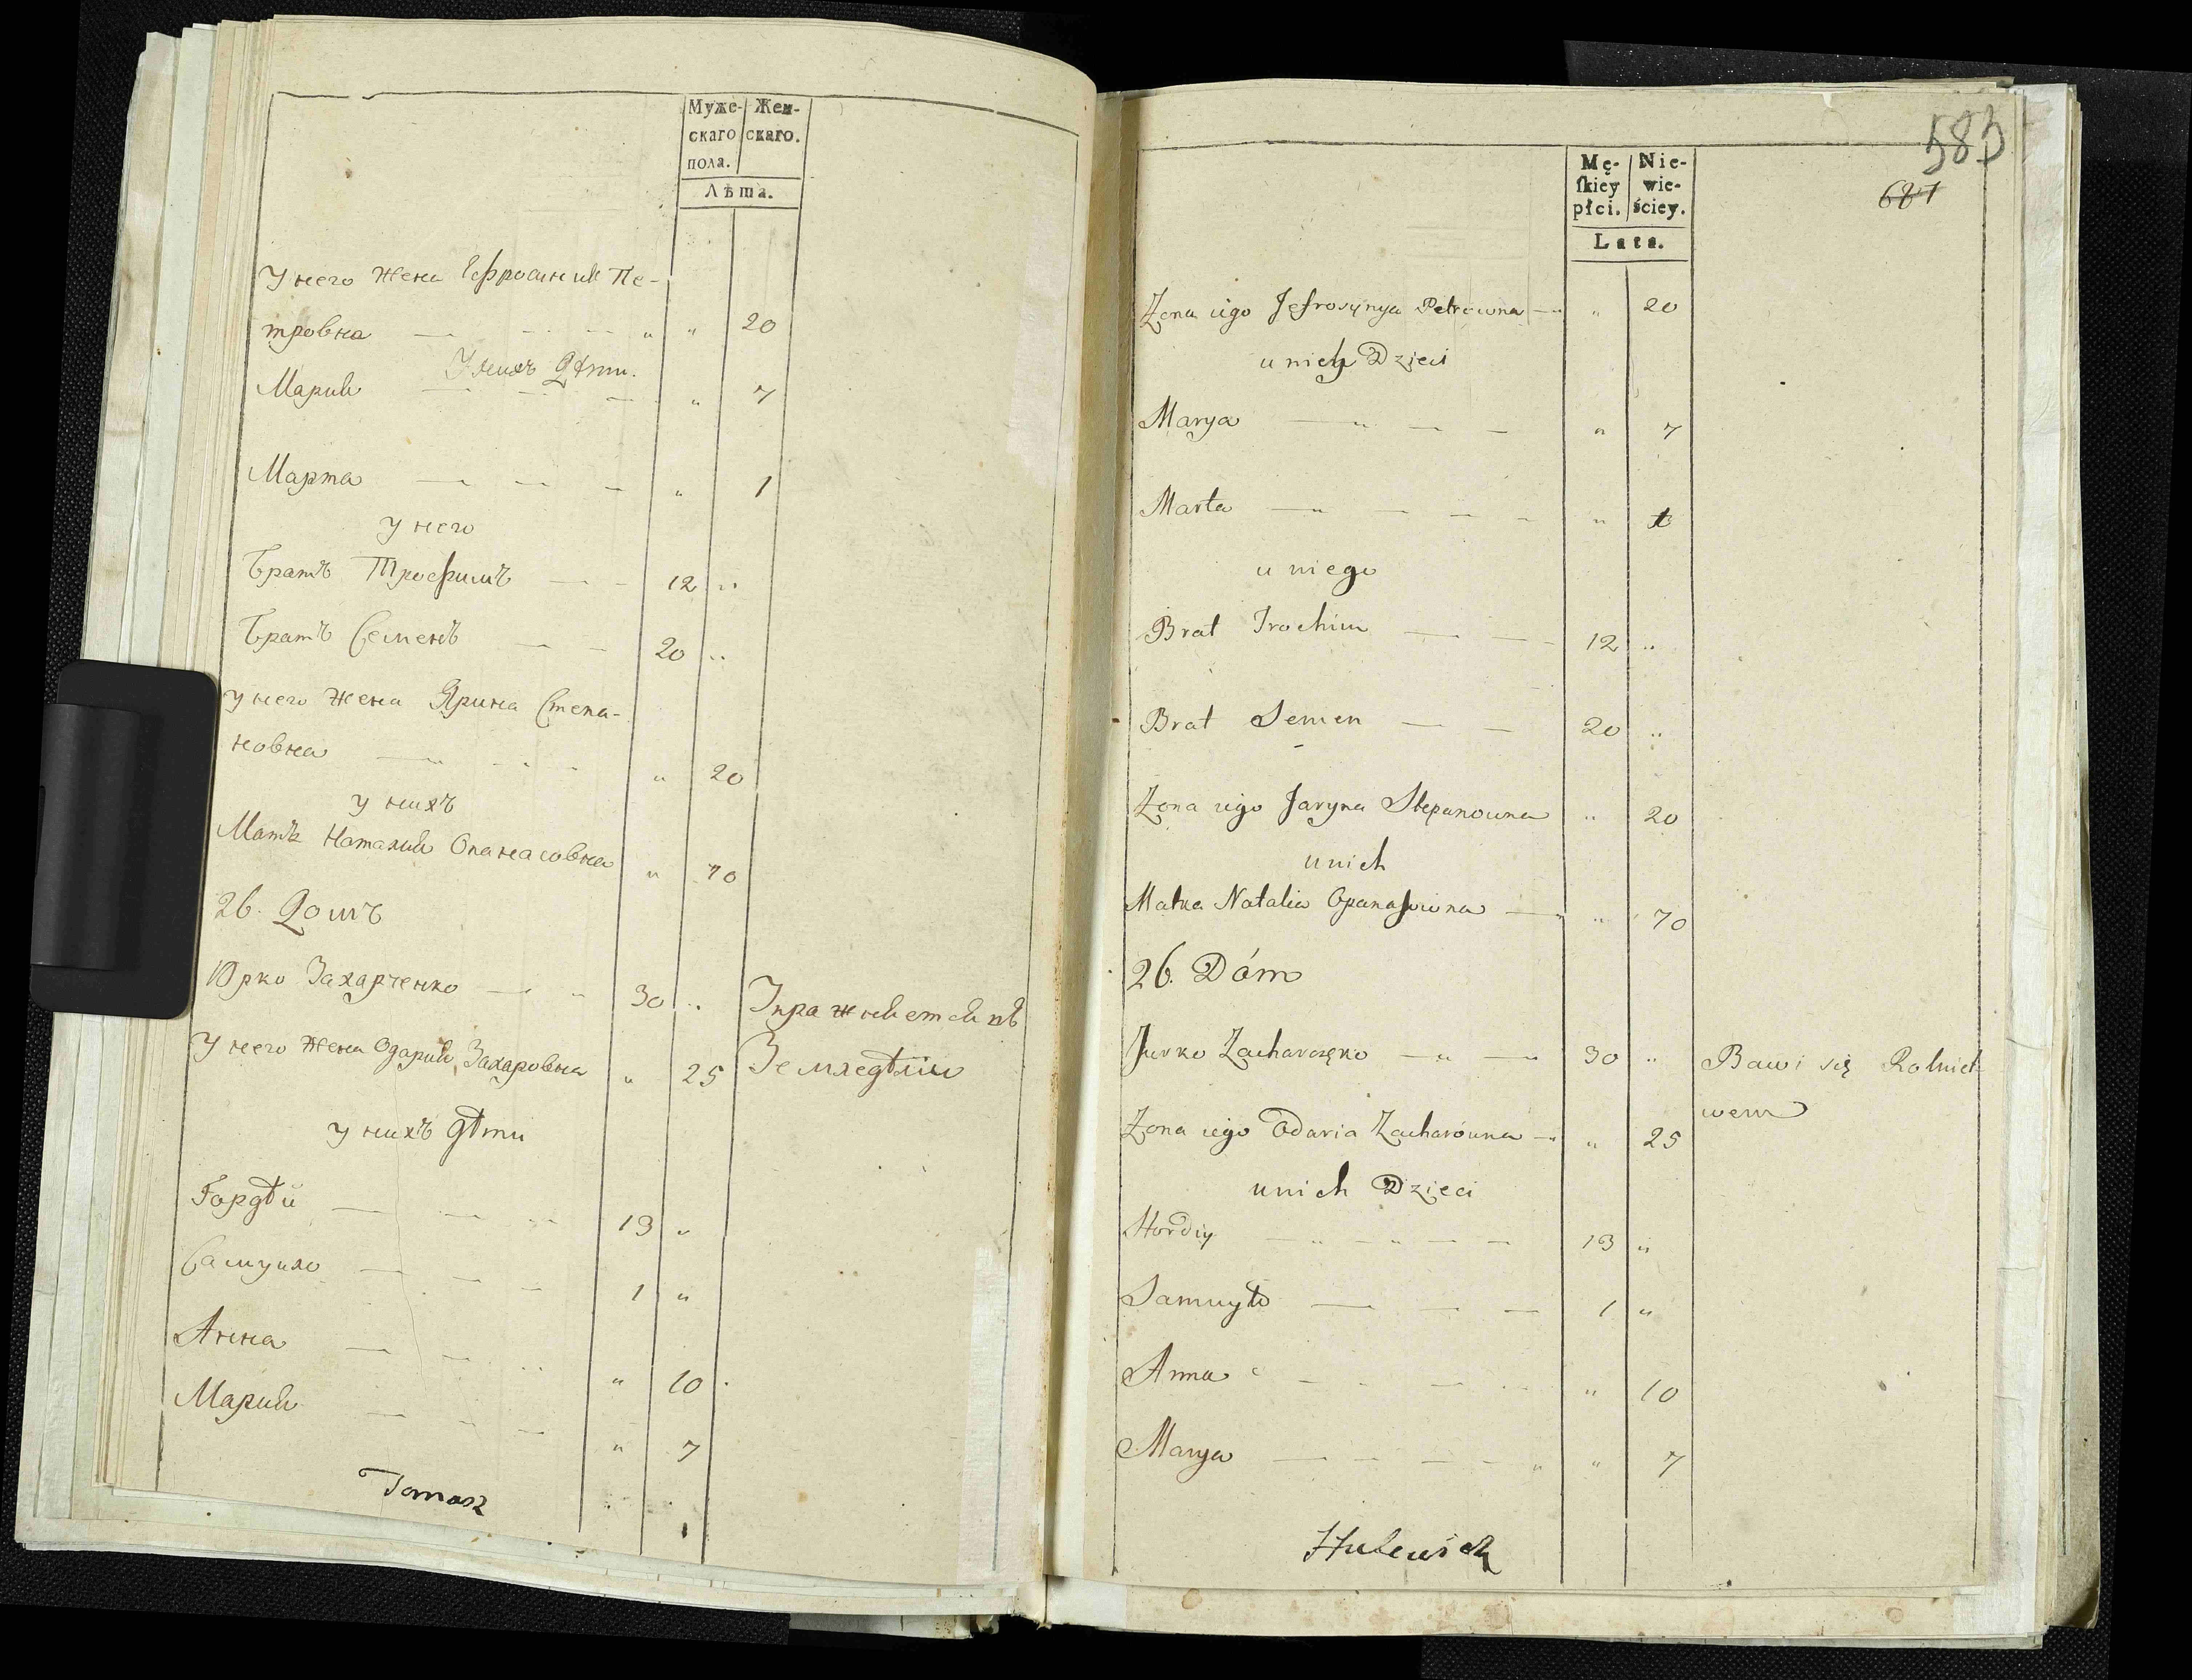 Муже- Жен-
скаго скаго.
пола.
Лѣта.
У него жена Ефросиния Пе-
тровна — " 20
У нихъ дѣти.
Мария — " 7
Марта — " 1
у него
Братъ Трофимъ — 12 "
Братъ Семенъ — 20 "
у него жена Ярина Степа-
новна — " 20
у нихъ
Мать Наталия Опанасовна " 70
26. Домъ
Юрко Захарченко — 30 " Упражняется въ
У него жена Одария Захаровна " 25 Земледѣлии
у нихъ дѣти
Гордѣй — 13 "
Самуило — 1 "
Анна — " 10
Мария — " 7
Tomasz
583
681
Mę- Nie-
ſkiey wie-
płci. ściey.
Lata.
Żona iego Jefrosynya Petrowna — " 20
u nich Dzieci
Marya — " 7
Marta — " 1
u niego
Brat Trochim — 12 "
Brat Semen — 20 "
Żona iego Jaryna Stepanowna " 20
u nich
Matka Natalia Opanaſowna — " 70
26. Dóm
Jurko Zacharczęko — 30 " Bawi się Rolnict-
wem
Żona iego Odaria Zacharówna — " 25
u nich Dzieci
Hordiy — 13 "
Samuyło — 1 "
Anna — " 10
Marya — " 7
Hulewicz